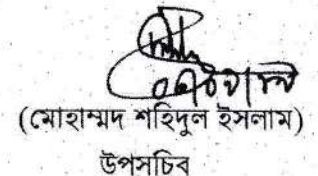 (মোহাম্মদ শহিদুল ইসলাম)
উপসচিব